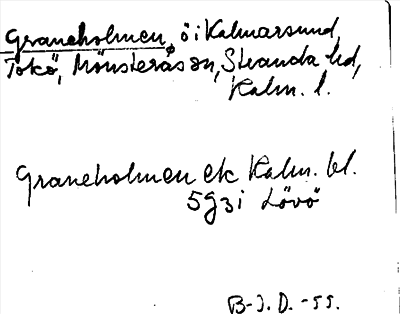 Graneholmen, ö i Kalmarsund,
Tokö, Mönsterås sn, Stranda hd,
Kalm. l.
Graneholmen ek Kalm. bl.
5g3i Lövö
B-J. D. -55.